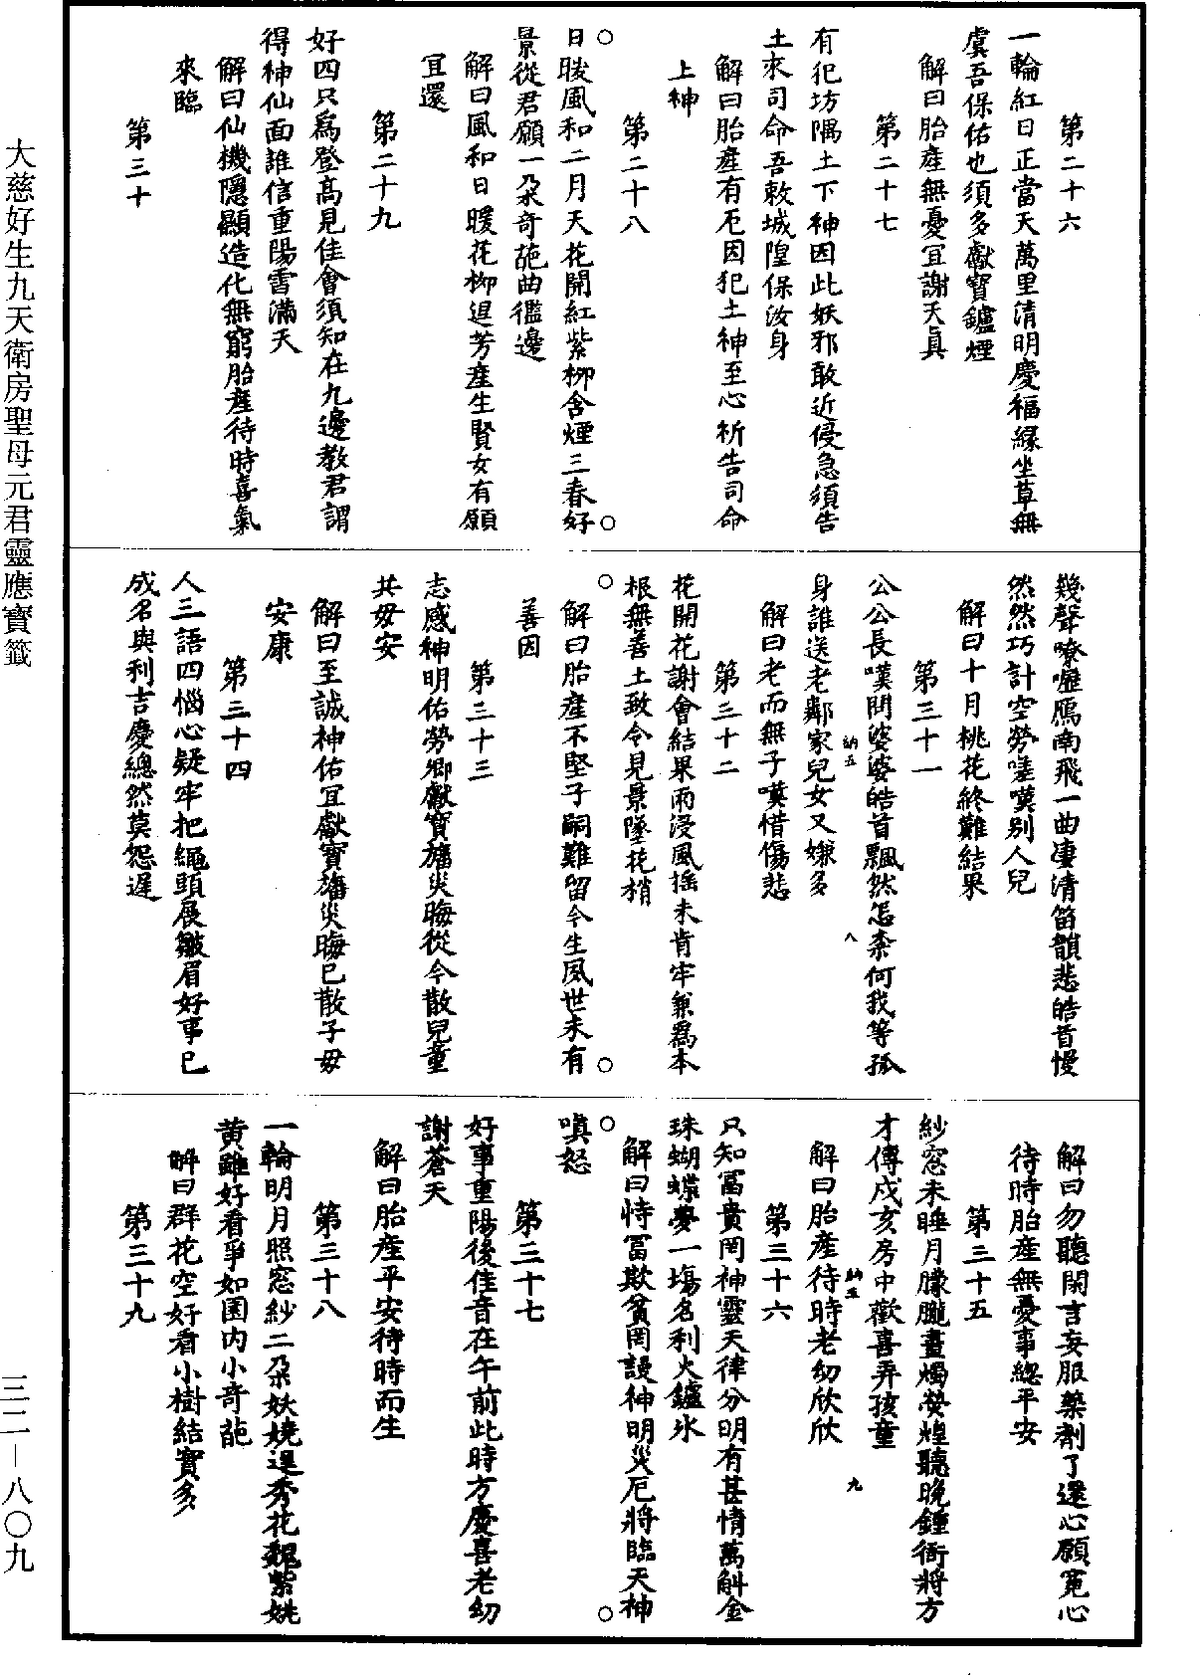 第二十六
一輪紅日正當天萬里清明慶福緣坐草無
虞吾保佑也須多獻寶鑪煙
解曰胎產無憂宜謝天眞
第二十七
有犯坊隅土下神因此妖邪敢近侵急須告
土來司命吾敕城隍保汝身
解曰胎產有厄因犯土神至心祈告司命
上神
第二十八
日暖風和二月天花開紅紫柳含煙三春好
景從君願一朵奇葩曲檻邊
解曰風和日暖花柳逞芳產生賢女有願
宜還
第二十九
好四只爲登高見佳會須知在九邊教君謂
得神仙面誰信重陽雪滿天
解曰仙機隱顯造化無窮胎產待時喜氣
來臨
第三十
幾聲嘹嚦鴈南飛一曲凄清笛韻悲皓首慢
然然巧計空勞嗟嘆別人兒
解曰十月桃花終難結果
第三十一
公公長嘆問婆婆皓首飄然怎柰何我等孤
身誰送老鄰家兒女又嫌多
納五
八
解曰老而無子嘆惜傷悲
第三十二
花開花謝會結果雨浸風搖未肯牢兼爲本
根無善土致令見景墜花梢
解曰胎產不堅子嗣難留今生夙世未有
善因
第三十三
志感神明佑勞卿獻寶旛災晦從今散兒童
共母安
解曰至誠神佑宜獻寶旛災晦已散子母
安康
第三十四
人三語四惱心疑牢把繩頭展皺眉好事已
成名與利吉慶總然莫怨遲
解曰勿聽閑言妄服藥劑了還心願寬心
待時胎產無憂事總平安
第三十五
紗窓未睡月朦朧畫燭熒煌聽晚鍾術將方
才傳戌亥房中歡喜弄孩童
納五
九
解曰胎產待時老幼欣欣
第三十六
只知冨貴罔神靈天律分明有甚情萬斛金
珠蝴蝶夢一塲名利火鑪氷
解曰恃冨欺貧罔謾神明災厄將臨天神
嗔怒
第三十七
好事重陽後佳音在午前此時方慶喜老幼
謝蒼天
解曰胎產平安待時而生
第三十八
一輪明月照窓紗二朵妖嬈逞秀花魏紫姚
黄雖好看爭如園内小奇葩
解曰群花空好看小樹結實多
第三十九
大慈好生九天衛房聖母元君靈應寶籤
三二—八〇九